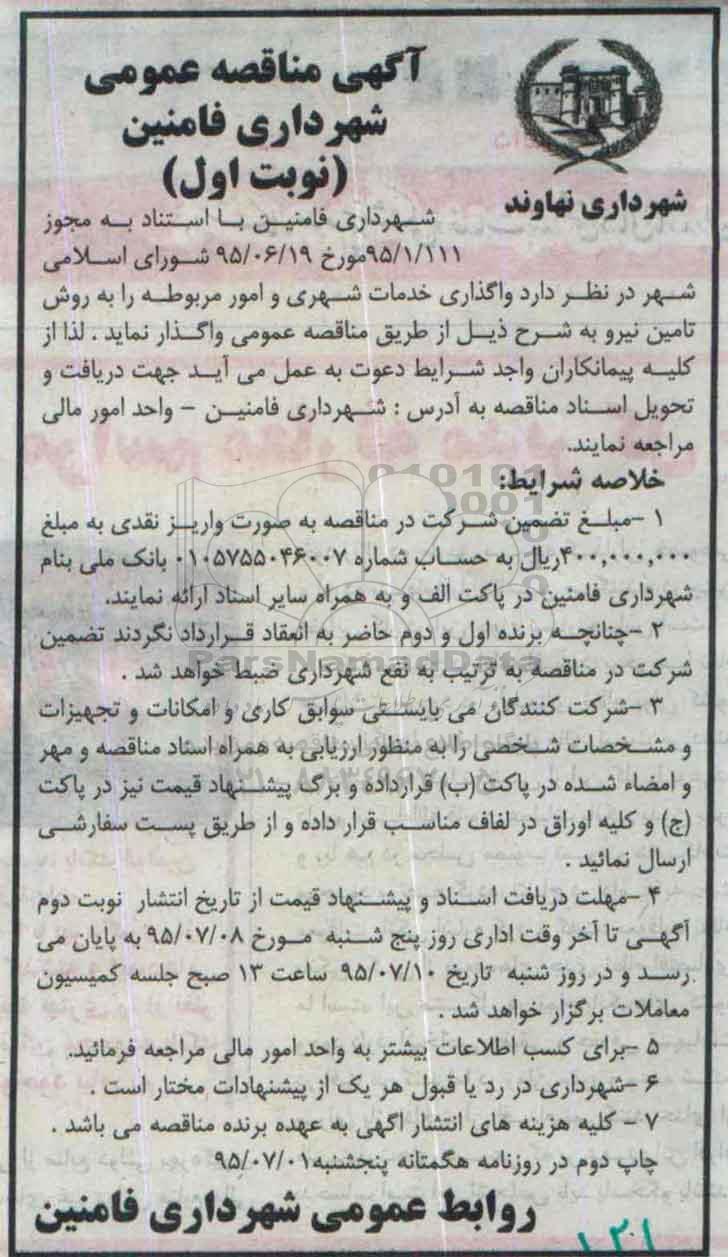 آگهی مناقصه عمومی
شهرداری فامنین
(نوبت اول)
شهرداری نهاوند
شهرداری فامنین با استناد به مجوز
۹۵/۱/۱۱۱مورخ ۹۵/۰۶/۱۹ شورای اسلامی
شهر در نظر دارد واگذاری خدمات شهری و امور مربوطه را به روش
تامین نیرو به شرح ذیل از طریق مناقصه عمومی واگذار نماید . لذا از
کلیه پیمانکاران واجد شرایط دعوت به عمل می آید جهت دریافت و
تحویل اسناد مناقصه به آدرس : شهرداری فامنین – واحد امور مالی
مراجعه نمایند.
خلاصه شرایط:
۱ –مبلغ تضمین شرکت در مناقصه به صورت واریز نقدی به مبلغ
۴۰۰,۰۰۰,۰۰۰ریال به حساب شماره ۰۱۰۵۷۵۵۰۴۶۰۰۷ بانک ملی بنام
شهرداری فامنین در پاکت الف و به همراه سایر اسناد ارائه نمایند.
۲ –چنانچه برنده اول و دوم حاضر به انعقاد قرارداد نگردند تضمین
شرکت در مناقصه به ترتیب به نفع شهرداری ضبط خواهد شد .
ParsNamadData
۳ –شرکت کنندگان می بایستی سوابق کاری و امکانات و تجهیزات
و مشخصات شخصی را به منظور ارزیابی به همراه اسناد مناقصه و مهر
و امضاء شده در پاکت (ب) قرارداده و برگ پیشنهاد قیمت نیز در پاکت
(ج) و کلیه اوراق در لفاف مناسب قرار داده و از طریق پست سفارشی
ارسال نمائید .
۴ –مهلت دریافت اسناد و پیشنهاد قیمت از تاریخ انتشار نوبت دوم
آگهی تا آخر وقت اداری روز پنج شنبه مورخ ۹۵/۰۷/۰۸ به پایان می
رسد و در روز شنبه تاریخ ۹۵/۰۷/۱۰ ساعت ۱۳ صبح جلسه کمیسیون
معاملات برگزار خواهد شد .
۵ –برای کسب اطلاعات بیشتر به واحد امور مالی مراجعه فرمائید.
۶ –شهرداری در رد یا قبول هر یک از پیشنهادات مختار است .
۷ – کلیه هزینه های انتشار اگهی به عهده برنده مناقصه می باشد .
چاپ دوم در روزنامه هگمتانه پنجشنبه۹۵/۰۷/۰۱
روابط عمومی شهرداری فامنین